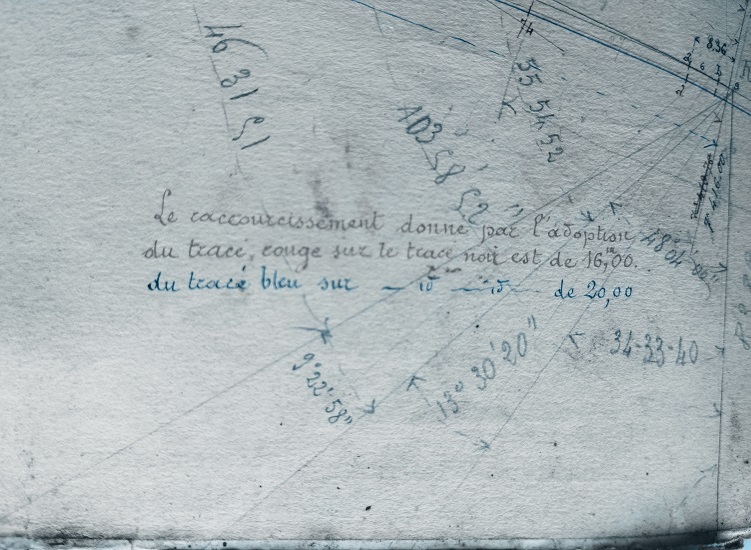 74
8,36
46 31 51
55 54 52
103 58 52"
Le raccourcissement donné par l'adoption
du tracé, rouge sur le tracé noir est de 16,m00.
du tracé bleu sur — id — — id — de 20,00
48° 04'
9° 22' 58"
13° 30' 20"
34-33-40